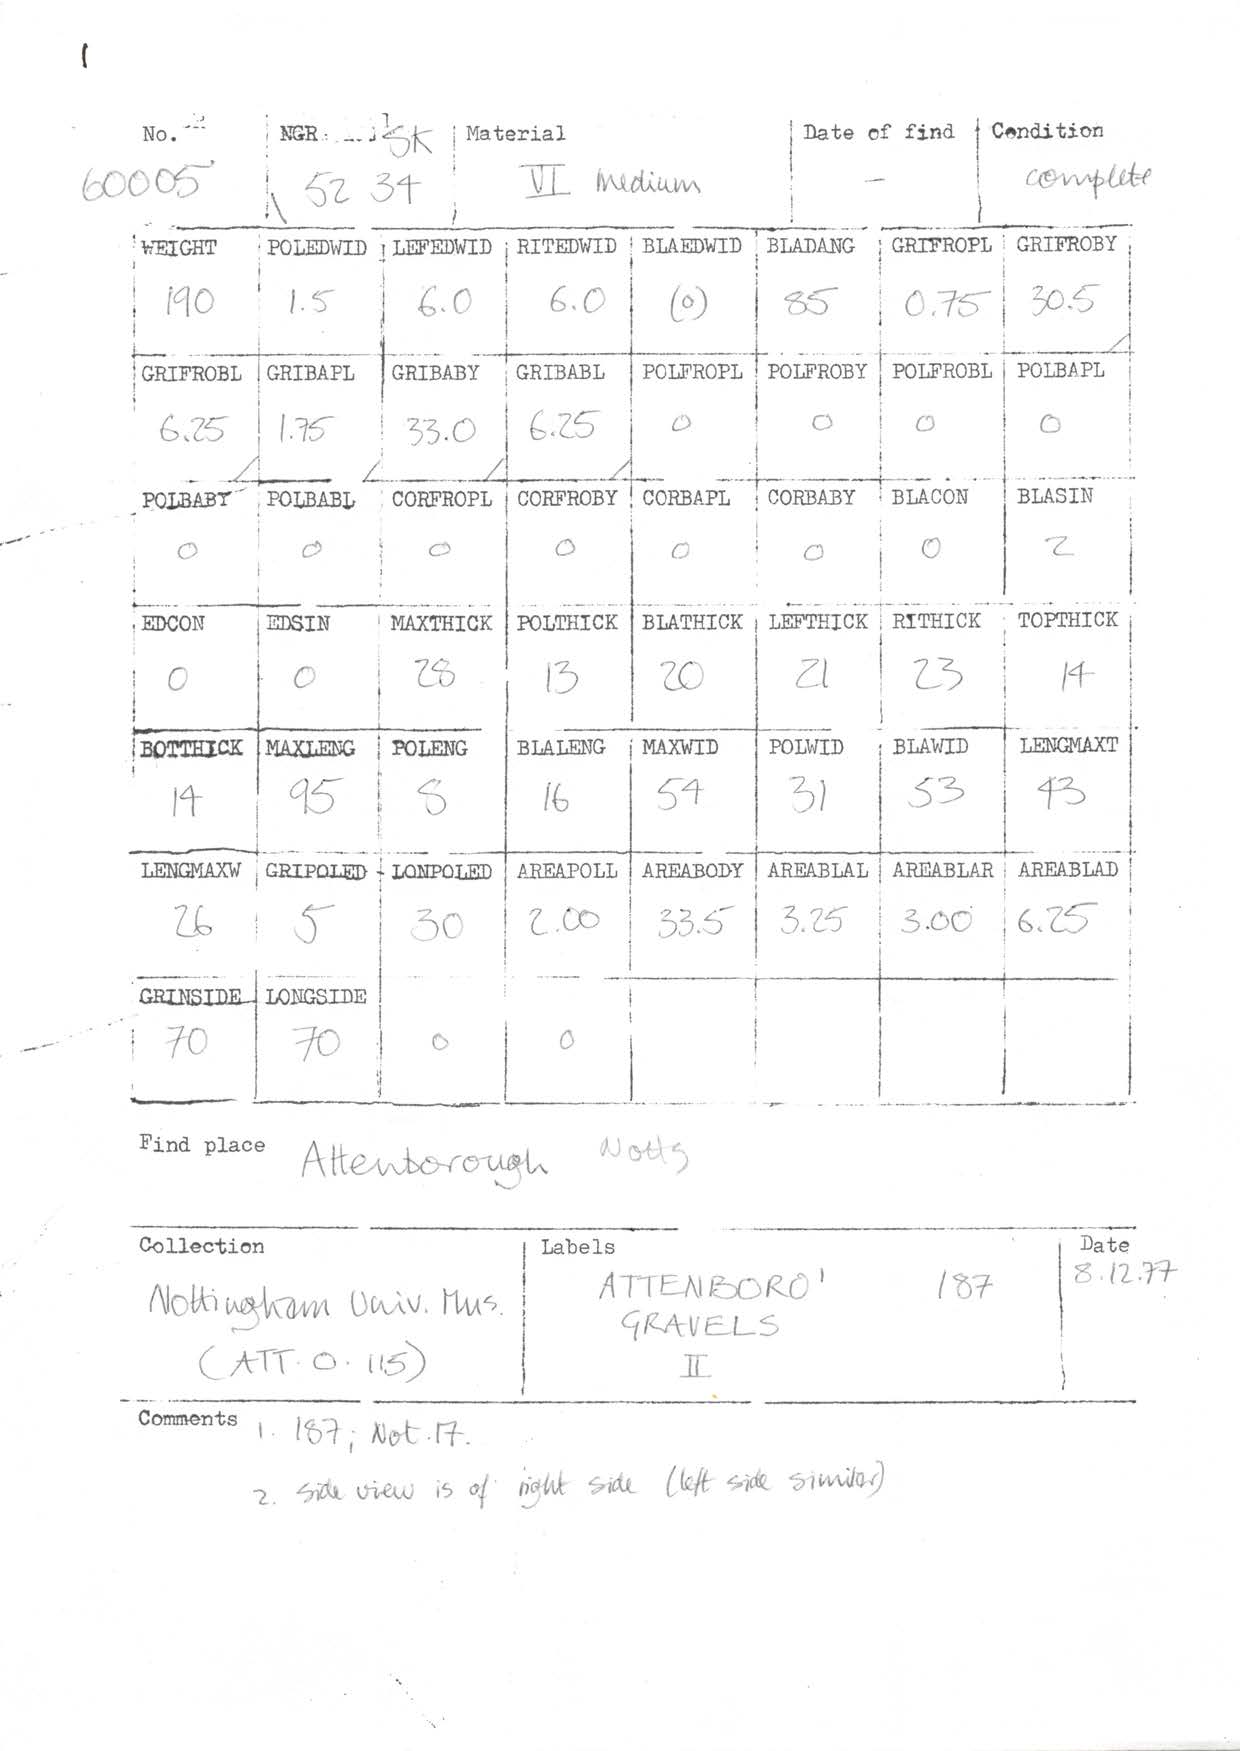 1
No. NGR SK Material Date of find Condition
60005 52 34 VI Medium – complete
WEIGHT POLEDWID LEFEDWID RITEDWID BLAEDWID BLADANG GRIFROPL GRIFROBY
190 1.5 6.0 6.0 (0) 85 0.75 30.5
GRIFROBL GRIBAPL GRIBABY GRIBABL POLFROPL POLFROBY POLFROBL POLBAPL
6.25 1.75 33.0 6.25 0 0 0 0
POLBABY POLBABL CORFROPL CORFROBY CORBAPL CORBABY BLACON BLASIN
0 0 0 0 0 0 0 2
EDCON EDSIN MAXTHICK POLTHICK BLATHICK LEFTHICK RITHICK TOPTHICK
0 0 28 13 20 21 23 14
BOTTHICK MAXLENG POLENG BLALENG MAXWID POLWID BLAWID LENGMAXT
14 95 8 16 54 31 53 43
LENGMAXW GRIPOLED LONPOLED AREAPOLL AREABODY AREABLAL AREABLAR AREABLAD
26 5 30 2.00 33.5 3.25 3.00 6.25
GRINSIDE LONGSIDE
70 70 0 0
Find place Attenborough Notts
Collection Labels Date
Nottingham Univ. Mus. ATTENBORO' 187 8.12.77
GRAVELS
(ATT. O. 115) II
Comments 1. 187; Not. 17.
2. side view is of right side (left side similar)